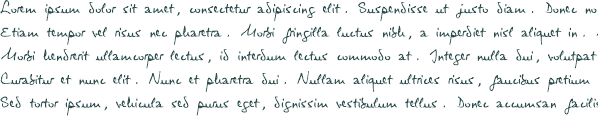 Lorem ipsum dolor sit amet, consectetur adipiscing elit. Suspendisse ut justo diam. Donec no
Etiam tempor vel risus nec pharetra. Morbi fringilla luctus nibh, a imperdiet nisl aliquet in. .
Morbi hendrerit ullamcorper lectus, id interdum lectus commodo at. Integer nulla dui, volutpat
Curabitur et nunc elit. Nunc et pharetra dui. Nullam aliquet ultrices risus, faucibus pretium
Sed tortor ipsum, vehicula sed purus eget, dignissim vestibulum tellus. Donec accumsan facilis